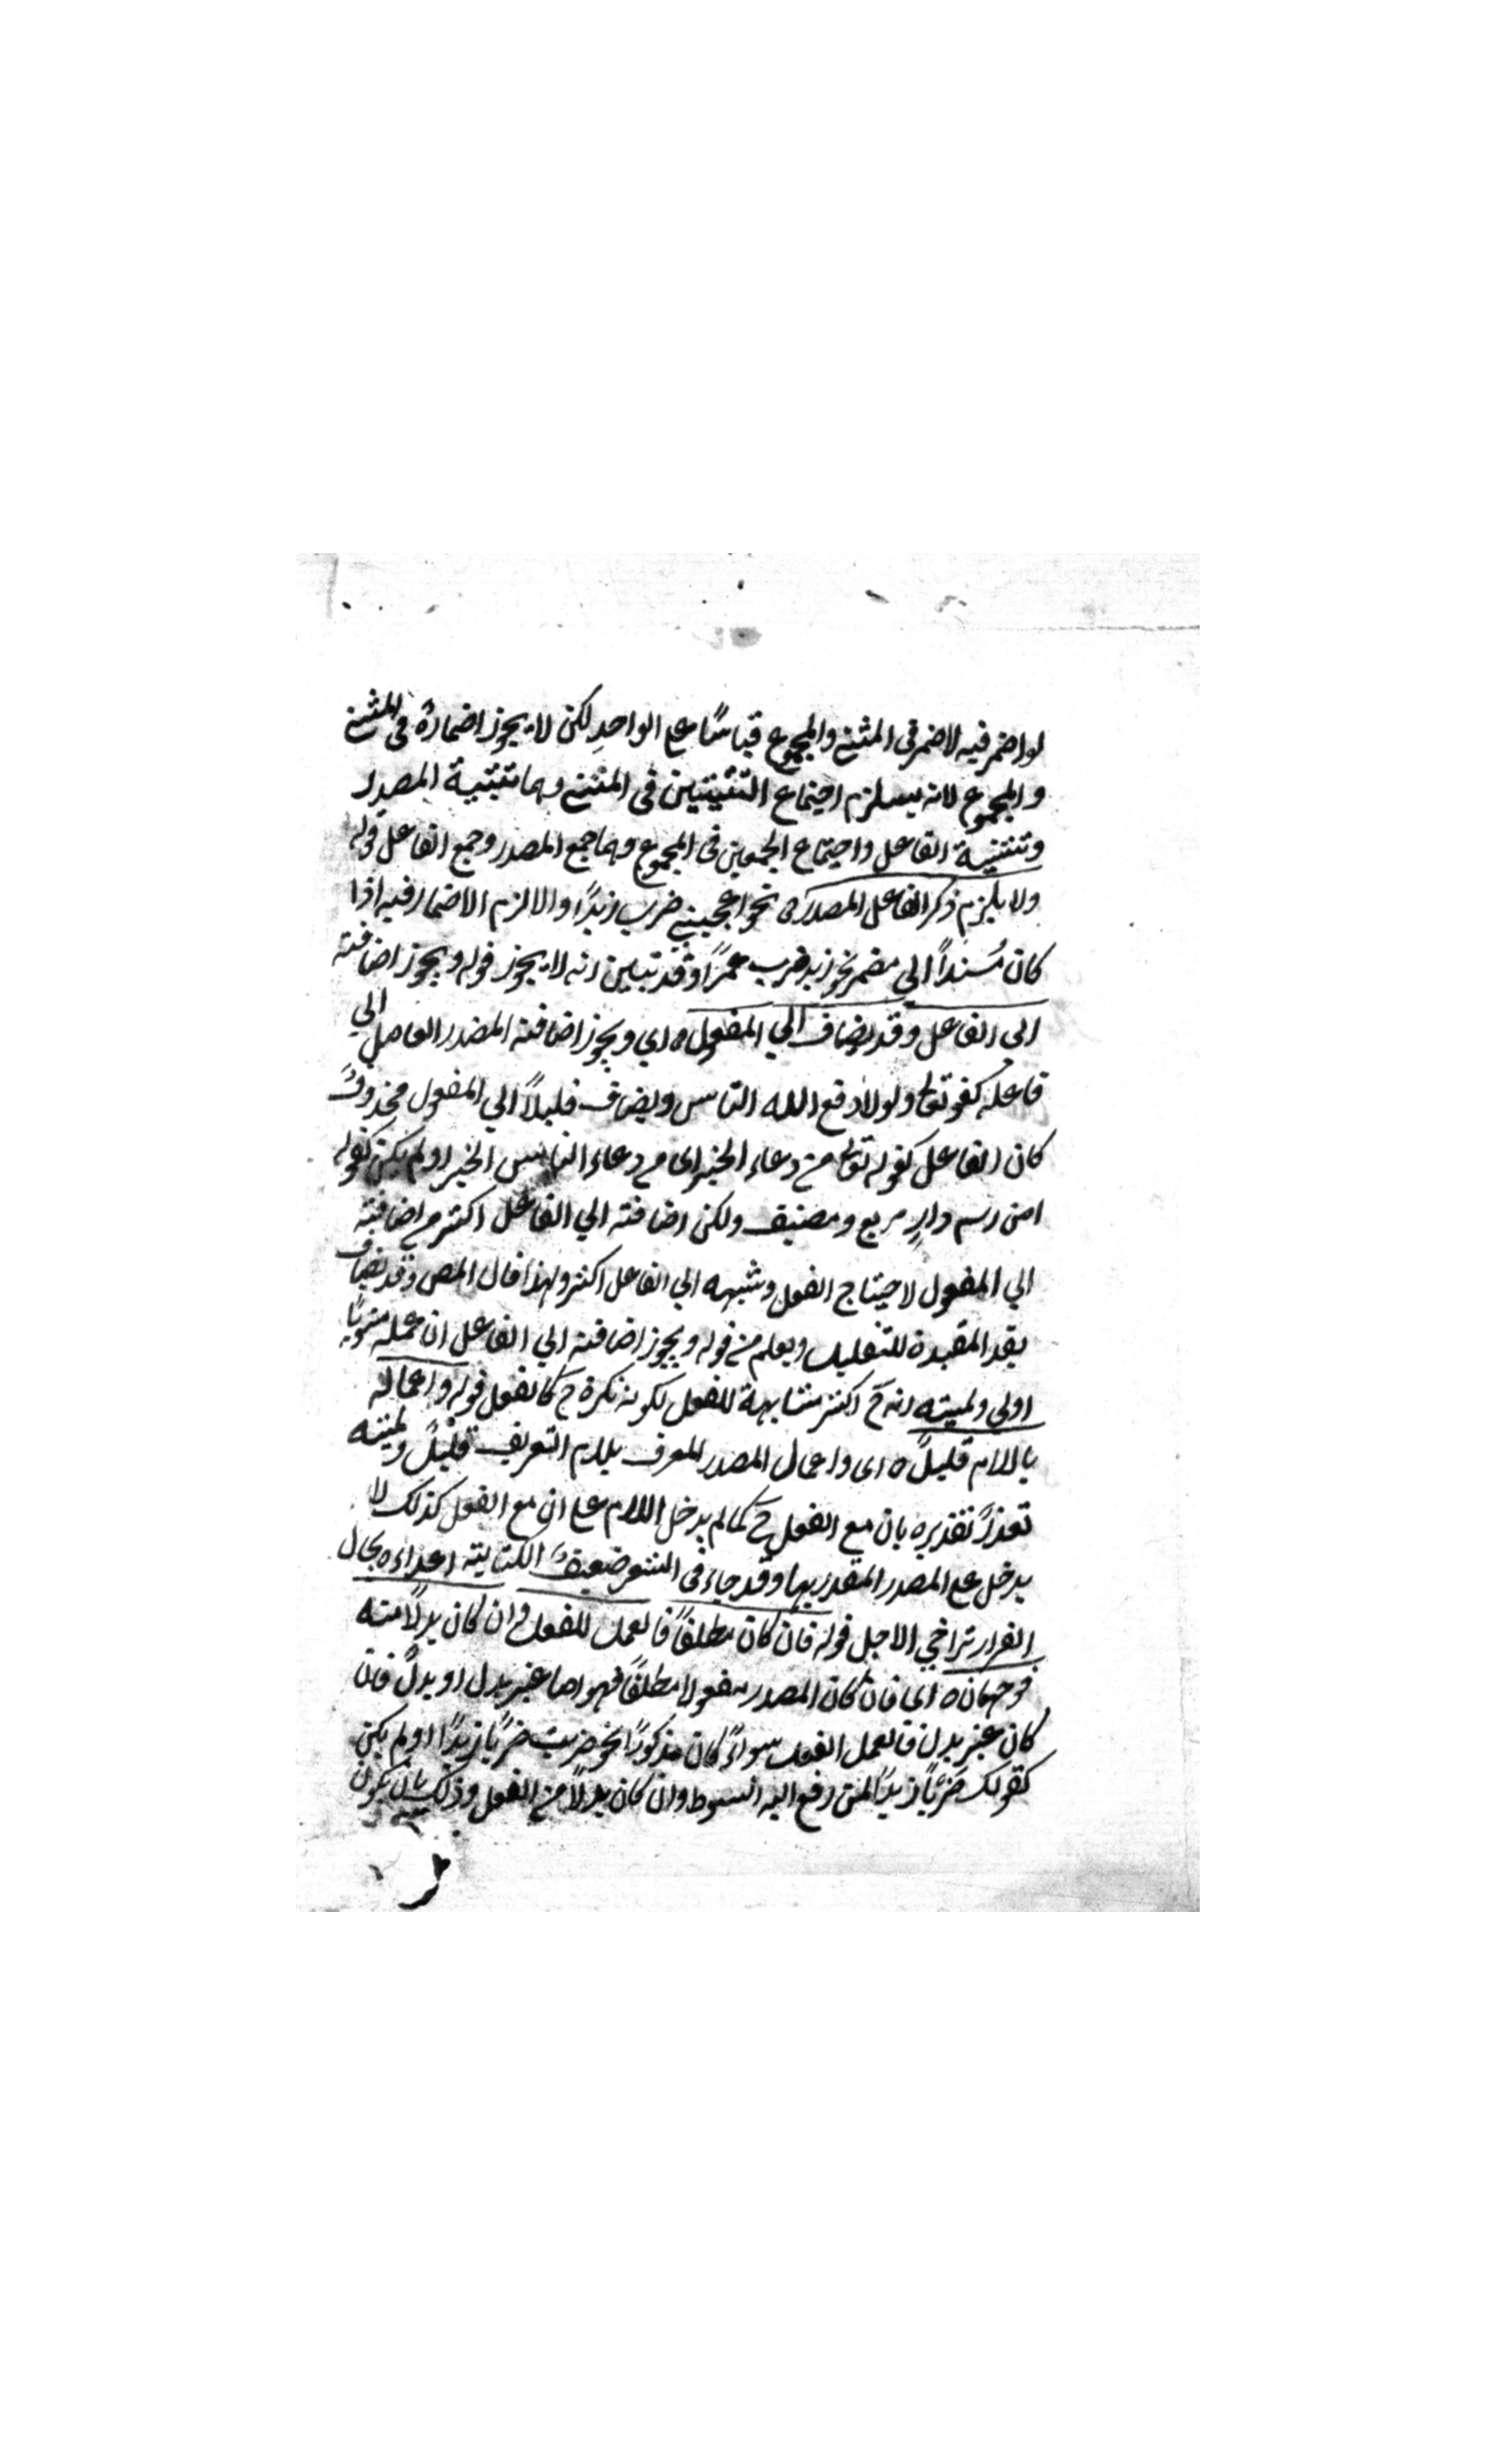 لو اضمر فيه لاضمر في المثنى والمجموع قياسًا على الواحدِ لكن لا يجوز اضمارهُ في المثنى
والمجموع لانه يستلزم اجتماع التثنيتين في المثنى وهما تثنية المصدر
وتثنية الفاعل واجتماع الجمعين في المجموع وهما جمع المصدر وجمع الفاعل قوله
ولا يلزم ذكر الفاعل المصدر نحو اعجبني ضرب زيدًا والا لزم الاضمار فيه اذا
كان مُسندًا الي مضمر نحو زيد ضرب عمرًا وقد تبين انه لا يجوز قوله ويجوز اضافته
الى الفاعل وقد يضاف الي المفعول ه اي ويجوز اضافته المصدر العامل الي
فاعله كقو تعالى ولولا دفع الله الناس ويضاف قليلاً الي المفعول محذوفً
كان الفاعل كقوله تعالى من دعاء الخير اى من دعاء الناس الخير او لم يكن كقوله
امن رسم دارٍ مربع ومصيف ولكن اضافته الي الفاعل اكثر من اضافته
الي المفعول لاحتياج الفعل وشبهه الي الفاعل اكثر ولهذا قال المص وقد يضاف
بقد المفيدة للتقليل ويعلم من قوله ويجوز اضافته الي الفاعل ان عمله منونًا
اولي ولميته انه ح اكثر مشابهة للفعل لكونه نكرة ح كالفعل قوله واعماله
باللام قليلً ه اى واعمال المصدر المعرف بلام التعريف قليلً ولميته
تعذرً تقديره بان مع الفعل ح كما لم يدخل اللام على ان مع الفعل كذلك لا
يدخل على المصدر المقدر بها وقد جاء في الشعر ضعيفُ النكاية اعداءه يخال
الفرار تراخي الاجل قوله فان كان مطلقًا فالعمل للفعل وان كان بدلًا منه
فوجهان ه اى فان كان المصدر مفعولا مطلقًا فهو اما غير بدل او بدلً فان
كان غير بدل فالعمل الفعل سواءً كان مذكورًا نحو ضربت ضربًا زيدًا او لم يكن
كقولك ضَربًا زيدًا لمن رفع اليه السوط وان كان بدلًا من الفعل وذلك بان يكون